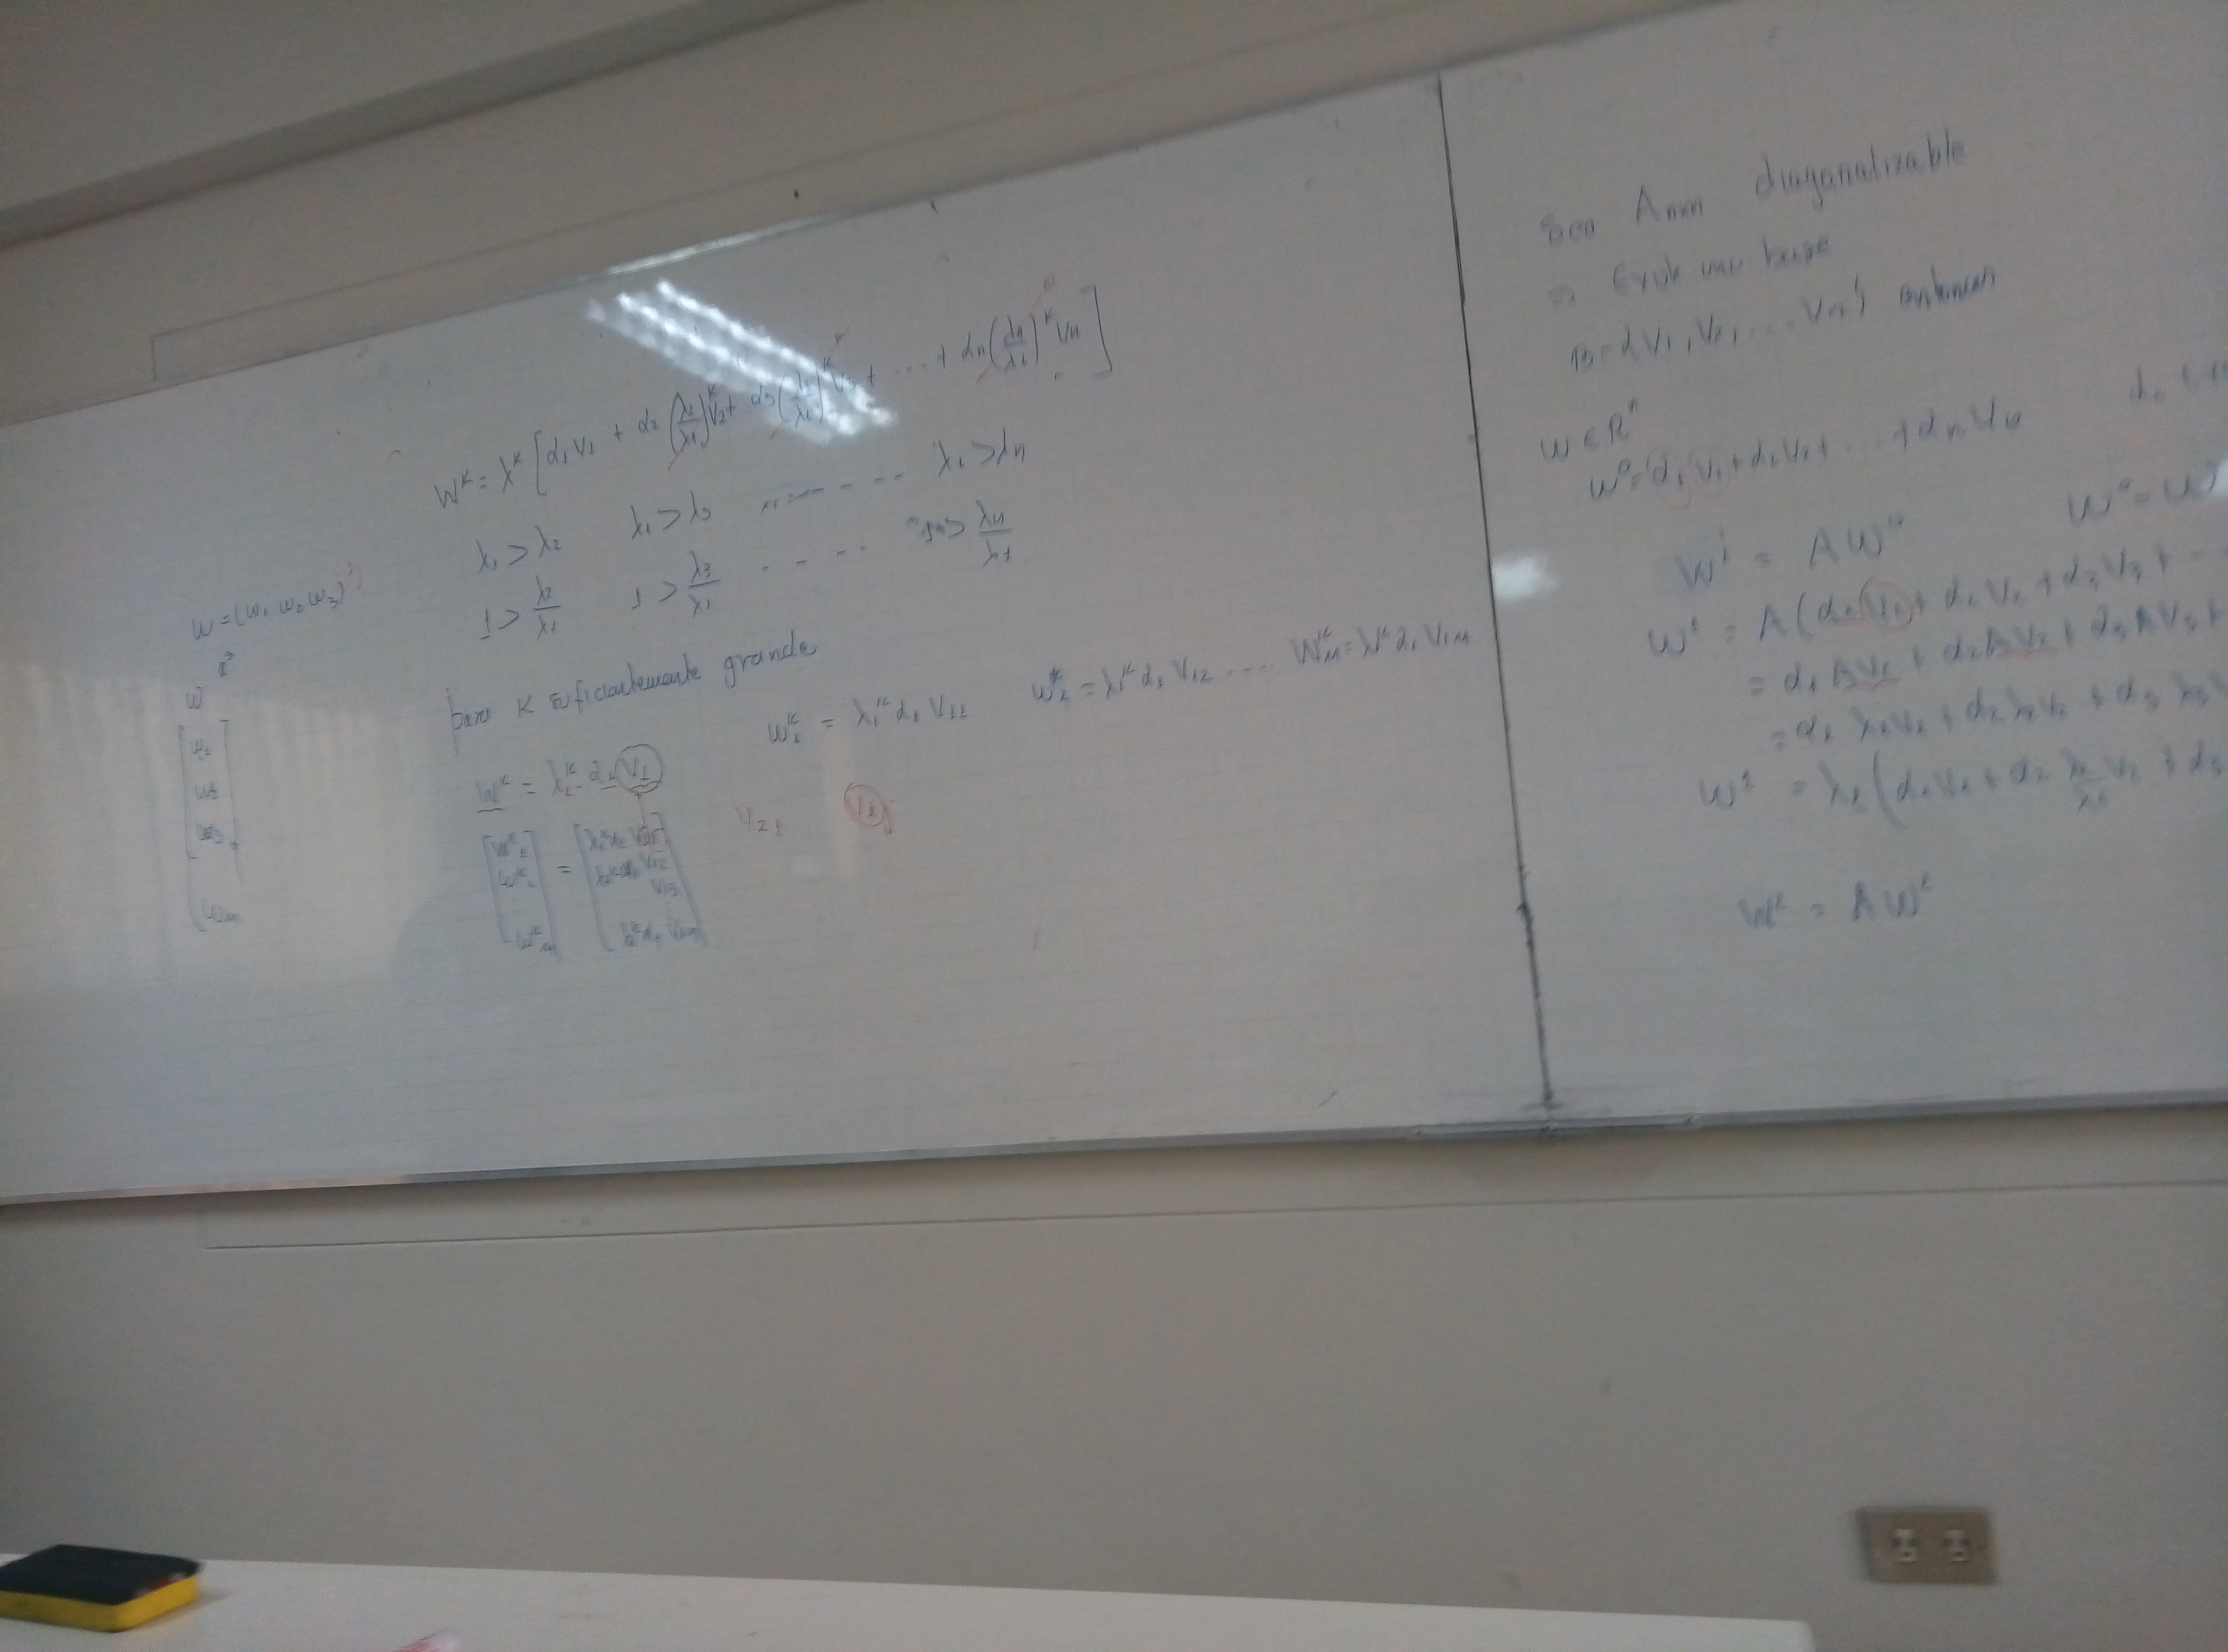 W = (w₁ w₂ w₃)
W
[w₁
w₂
w₃
Wᴷ = λᴷ [α₁V₁ + α₂(λ₂/λ₁)ᴷV₂ + α₃(λ₃/λ₁)ᴷV₃ + ... + αₙ(λₙ/λ₁)ᴷVₙ]
λ₁ > λ₂ λ₁ > λ₃ ....... λ₁ > λₙ
1 > λ₂/λ₁ 1 > λ₃/λ₁ ..... > λₙ/λ₁
para K suficientemente grande
Wᴷ = λ₁ᴷ α₁ V₁
W₁ᴷ = λ₁ᴷ α₁ V₁₁ W₂ᴷ = λ₁ᴷ α₁ V₁₂ ..... Wₙᴷ = λ₁ᴷ α₁ V₁ₙ
V₂₁
Sea Anxn diagonalizable
⇒ Existe una base
B = {V₁, V₂, ... Vₙ} entonces
W ∈ Rⁿ
W⁰ = α₁V₁ + α₂V₂ + ... + αₙVₙ
W¹ = AW⁰ W⁰ = W
W¹ = A(α₁V₁ + α₂V₂ + α₃V₃ +
= α₁AV₁ + α₂AV₂ + α₃AV₃ +
= α₁λ₁V₁ + α₂λ₂V₂ + α₃λ₃
W¹ = λ₁(α₁V₁ + α₂ λ₂/λ₁ V₂ + α₃
W² = AW¹